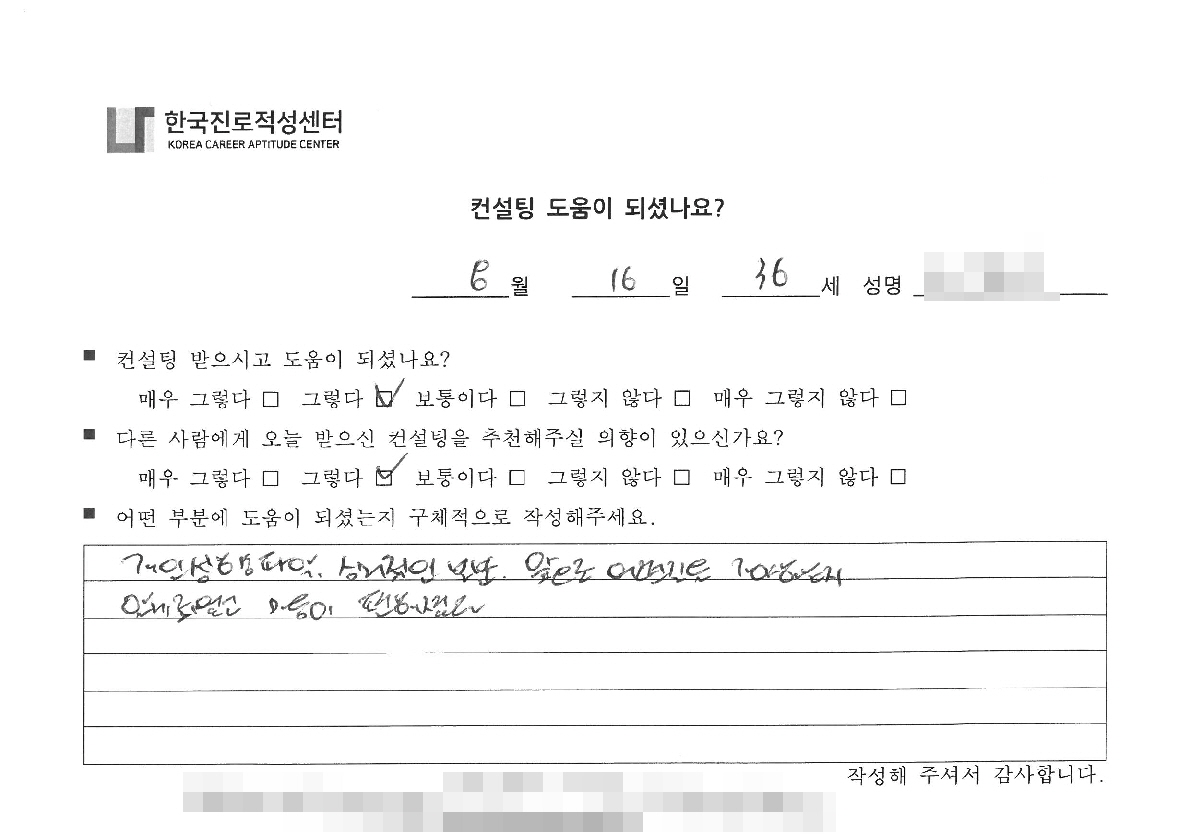 한국진로적성센터
KOREA CAREER APTITUDE CENTER
컨설팅 도움이 되셨나요?
6월 16일 36세 성명
■ 컨설팅 받으시고 도움이 되셨나요?
매우 그렇다 □ 그렇다 ☑ 보통이다 □ 그렇지 않다 □ 매우 그렇지 않다 □
■ 다른 사람에게 오늘 받으신 컨설팅을 추천해주실 의향이 있으신가요?
매우 그렇다 □ 그렇다 ☑ 보통이다 □ 그렇지 않다 □ 매우 그렇지 않다 □
■ 어떤 부분에 도움이 되셨는지 구체적으로 작성해주세요.
개인성향파악. 심리적인 부분. 앞으로 어떤진로 가야하는지
마음이 편해졌고
작성해 주셔서 감사합니다.